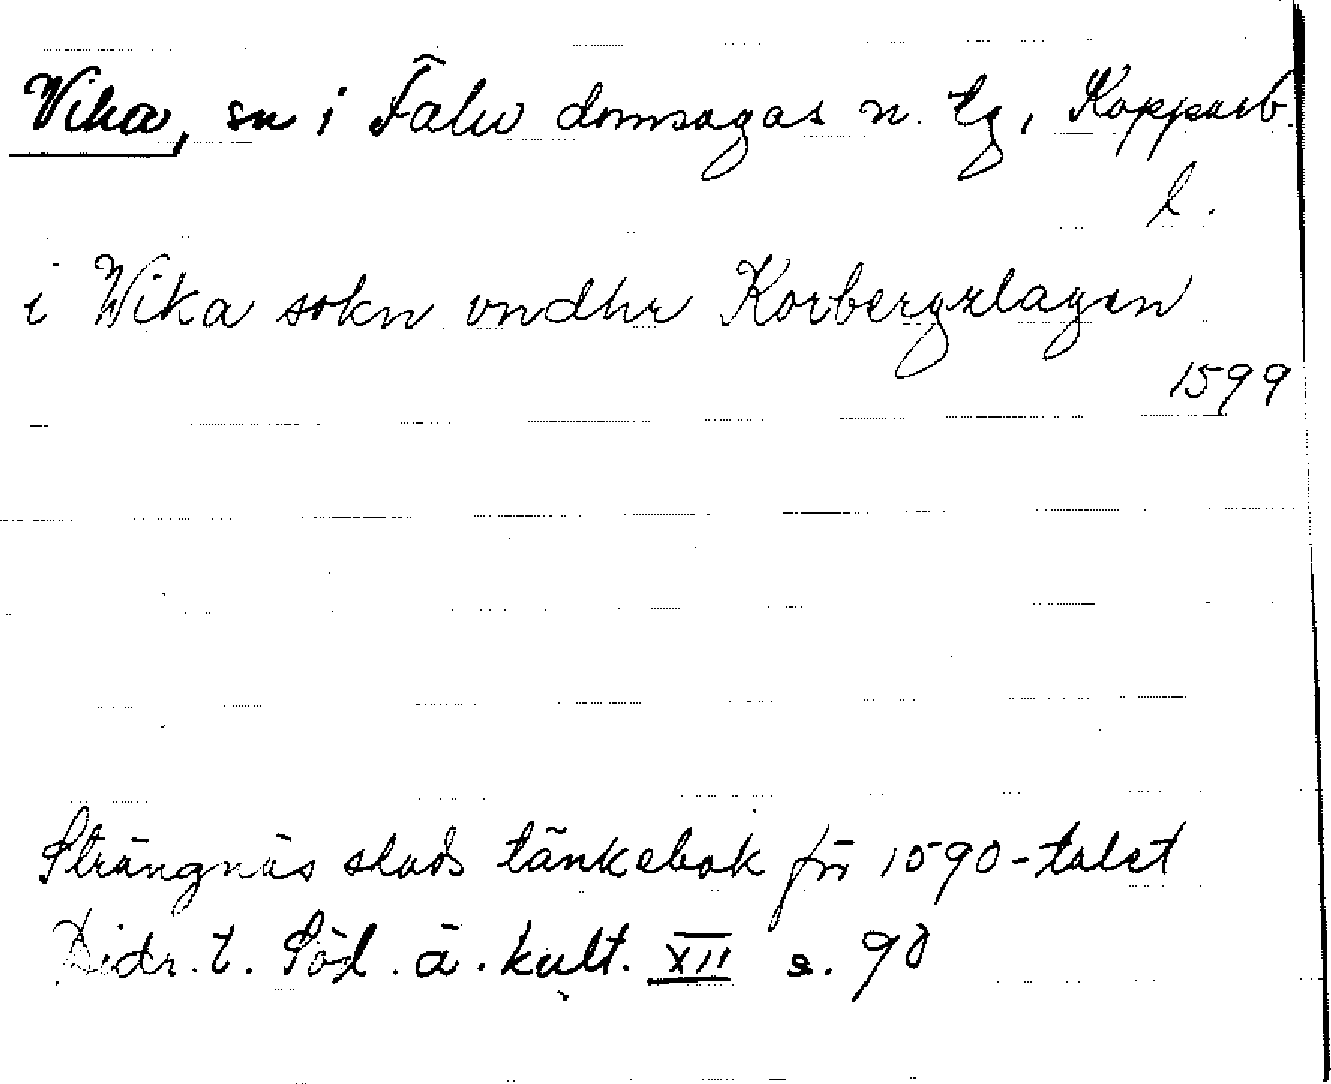 Vika, sn i Falu domsagas n. tg, Kopparb.
l.
i Wika sokn vndhr Korbergxlagen
1599
Strängnäs stads tänkebok för 1590-talet
Bidr. t. Söd. ä. kult. XII s. 90